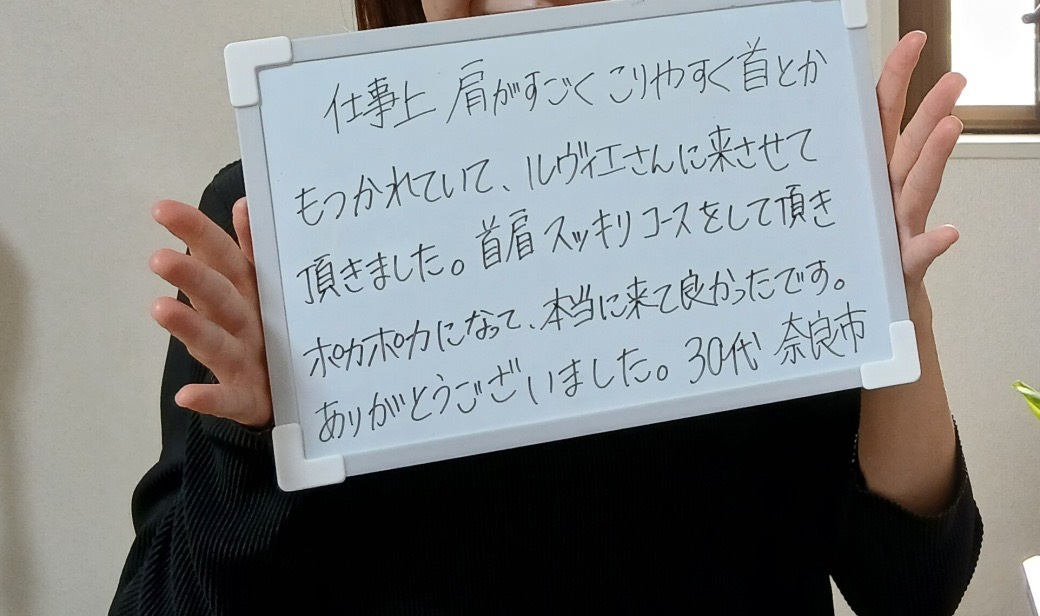 仕事上 肩がすごく こりやすく 首とか
もつかれていて、ルヴィエさんに来させて
頂きました。首肩 スッキリ コースをして頂き
ポカポカになって、本当に来て良かったです。
ありがとうございました。30代 奈良市